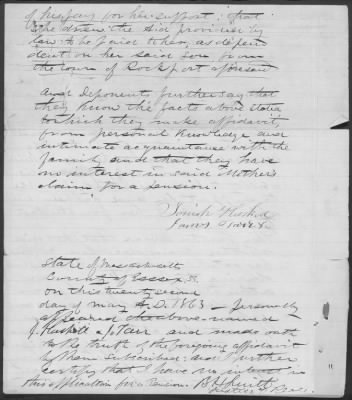 of his pay for her support; that
she draws the Aid provided by
law to be paid to her, as depen
dent on her said son from
the town of Rockport aforesaid
And Deponents further say that
they know the facts above stated
to which they make affidavit
from personal knowledge and
intimate acquaintance with the
family and that they have
no interest in said Mother's
claim for a pension.
Haskell
James
State of Massachusetts
County of Essex, ss
on this twenty second
day of may A.D. 1863 - personally
appeared the above-named
J. Haskell & J. Tarr and made oath
to the truth of the foregoing affidavit
by them subscribed: and I further
certify that I have no interest in
this application for a Pension.
Justice